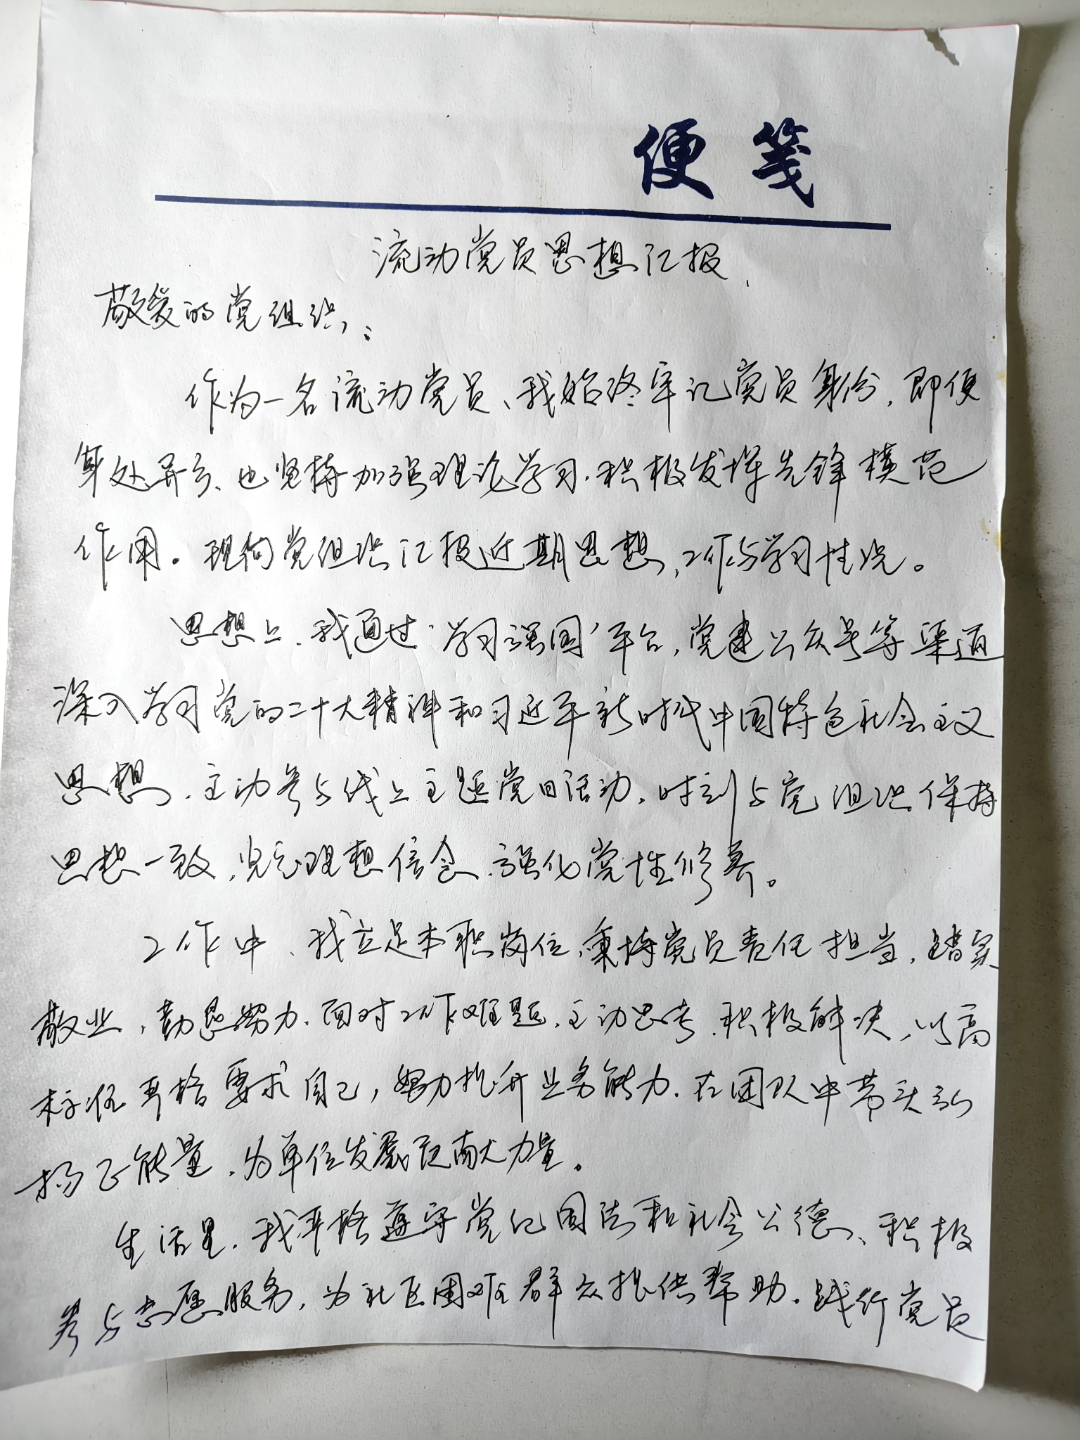 便笺
流动党员思想汇报
敬爱的党组织：
作为一名流动党员、我始终牢记党员身份，即便
身处异乡、也坚持加强理论学习，积极发挥先锋模范
作用。现向党组织汇报近期思想、工作与学习情况。
思想上，我通过“学习强国”平台，党建公众号等渠道
深入学习党的二十大精神和习近平新时代中国特色社会主义
思想，主动参与线上主题党日活动，时刻与党组织保持
思想一致，坚定理想信念，强化党性修养。
工作中、我立足本职岗位，秉持党员责任担当，踏实
敬业，勤恳努力，面对工作难题，主动思考，积极解决，以高
标准严格要求自己，努力提升业务能力，在团队中带头
扬正能量，为单位发展贡献力量。
生活里，我严格遵守党纪国法和社会公德、积极
参与志愿服务，为社区困难群众提供帮助，践行党员